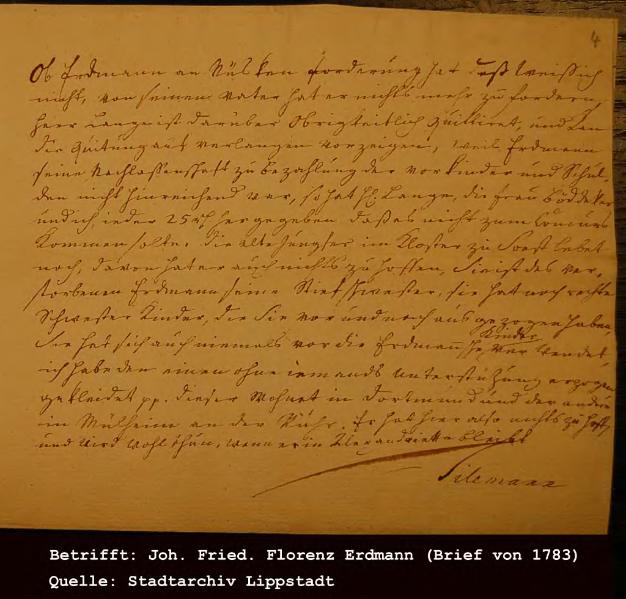 4
Ob Erdmann an Nülsken forderung hat daß weiß ich
nicht, von seinem vater hat er nichts mehr zu fordern,
Herr Lange ist darüber Obrigkeitlich quittiret, und kan
die Quitung auf verlangen vorzeigen, weil Erdmann
seine Nachlaßenschaft zu bezahlung der vorkinder und Schul,
den nicht hinreichend war, so hat H. Lange, die frau Böddeker
und ich ieder 25 her gegeben daß es nicht zum Concurs
Kommen solte. die alte Jungfer im Kloster zu Soest lebet
noch, davon hat er auch nichts zu hoffen, Sie ist des ver,
storbenen Erdmann seine Stief Schwester, sie hat noch rechte
Schwester Kinder, die Sie vor und nach aus gezogen haben
Kinder
Sie hat sich auch niemals vor die Erdmannsche verwendet
ich habe den einen ohne iemands Unterstützung erzogen
gekleidet pp. dieser Wohnet in Dortmund und der andre
in Mülheim an der Ruhr. Er hat hier also nichts zu hoff,
und wird wohl thun, wenn er in Alexandrette bleibt
Tilemann
Betrifft: Joh. Fried. Florenz Erdmann (Brief von 1783)
Quelle: Stadtarchiv Lippstadt